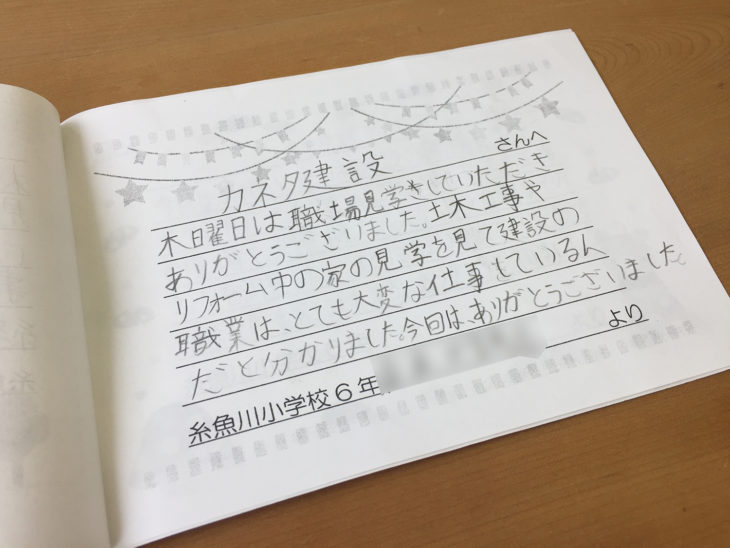 カネタ建設 さんへ
木曜日は職場見学をしていただき
ありがとうございました。土木工事や
リフォーム中の家の見学を見て建設の
職業は、とても大変な仕事をしているん
だと分かりました。今日は、ありがとうございました。
糸魚川小学校6年 より